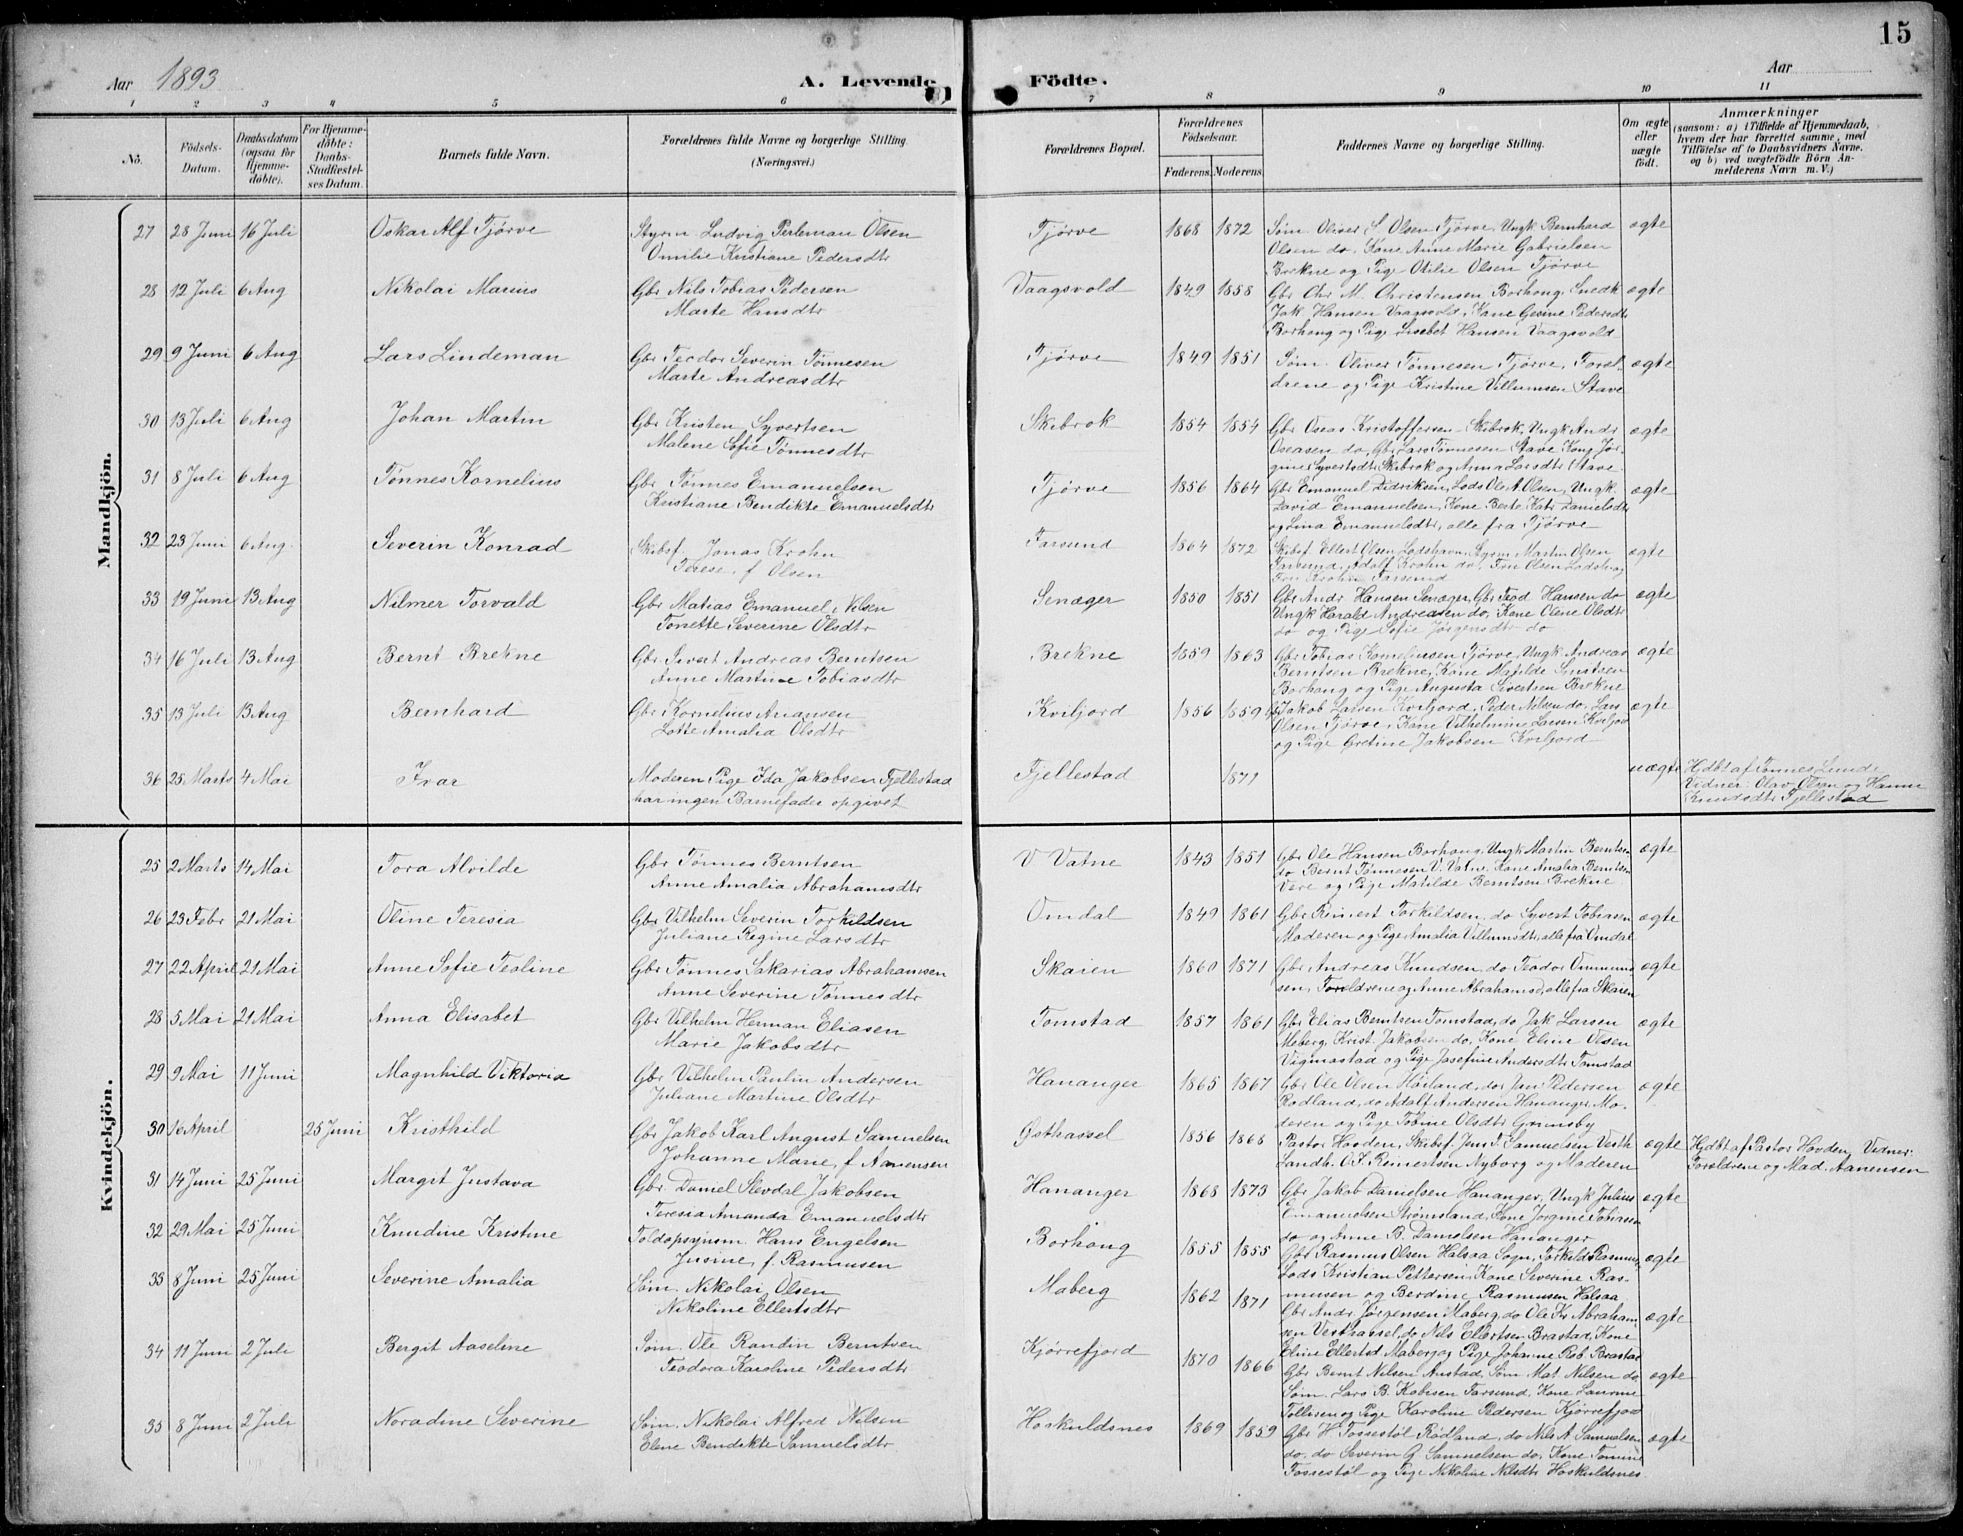 15
Aar 1893
A. Levende Födte.
Aar
1 2 3 4 5 6 7 8 9 10 11
No.
Födsels-Datum.
Daabsdatum (ogsaa for Hjemme-döbte).
For Hjemme-döbte: Daabs-Stadfæstel-ses Datum.
Barnets fulde Navn.
Forældrenes fulde Navne og borgerlige Stilling. (Næringsvei.)
Forældrenes Bopæl.
Forældrenes Födselsaar.
Faderens. Moderens.
Faddernes Navne og borgerlige Stilling.
Om ægte eller uægte födt.
Anmærkninger
(saasom: a) i Tilfælde af Hjemmedaab, hvem der har forrettet samme, med Tilföielse af to Daabsvidners Navne, og b) ved uægtefödte Börn An-melderens Navn m. V.)
Mandkjön.
27 28 Juni 16 Juli Oskar Alf Tjørve Styrm. Ludvig Perleman Olsen Tjørve 1868 1872 Søm. Oliver S. Olsen Tjørve, Ungk Bernhard ægte
Omilie Kristiane Pedersdtr Olsen do, Kone Anne Marie Gabrielsen
Brekne og Pige Otilie Olsen Tjørve
28 12 Juli 6 Aug Nikolai Marius Gbr Nils Tobias Pedersen Vaagsvold 1849 1858 Gbr Chr M. Christensen Borhaug, Snedk ægte
Marte Hansdtr Jak Hansen Vaagsvold, Kone Gesine Pedersdtr
Borhaug og Pige Lisebet Hansen Vaagsvold
29 9 Juni 6 Aug Lars Lindeman Gbr Teodor Severin Tønnesen Tjørve 1849 1851 Søm. Oliver Tønnesen Tjørve, Foræl- ægte
Marte Andreasdtr drene og Pige Kristine Villumsen Stave
30 13 Juli 6 Aug Johan Martin Gbr Kristen Syvertsen Skibrok 1854 1854 Gbr Oseas Kristoffersen Skibrok, Ungk Andr ægte
Malene Sofie Tønnesdtr Oseasen do, Gbr Lars Tønnesen Stave Kone Jør-
gine Syvertsdtr Skibrok og Anna Larsdtr Stave
31 8 Juli 6 Aug Tønnes Kornelius Gbr Tønnes Emanuelsen Tjørve 1856 1864 Gbr Emanuel Didriksen, Lods Ole A. Olsen, Ungk ægte
Kristiane Bendikte Emanuelsdtr David Emanuelsen, Kone Berte Katr Danielsdtr
og Lina Emanuelsdtr, alle fra Tjørve
32 23 Juni 6 Aug. Severin Konrad Skibsf. Jonas Krohn Farsund 1864 1872 Skibsf Ellert Olsen Lodshavn, Styrm Martin Olsen ægte
Terese, f Olsen Farsund, Adolf Krohn do, Fru Olsen Lodsh. og
Fru Krohn Farsund
33 19 Juni 13 Aug Nilmer Torvald Gbr Matias Emanuel Nilsen Senæger 1850 1851 Gbr Andr Hansen Senæger, Gbr Teod Hansen do ægte
Tonette Severine Olsdtr Ungk Harald Andreasen do, Kone Olene Olsdtr
do og Pige Sofie Jørgensdtr do
34 16 Juli 13 Aug Bernt Brekne Gbr Sivert Andreas Berntsen Brekne 1859 1863 Gbr Tobias Korneliussen Tjørve, Ungk Andreas ægte
Anne Martine Tobiasdtr Berntsen Brekne, Kone Matilde
Borhaug og Pige Augusta Sivertsen Brekne
35 13 Juli 13 Aug Bernhard Gbr Kornelius Ariansen Kviljord 1856 1859 Gbr Jakob Larsen Kviljord, Peder Nilsen do, Lars ægte
Lotte Amalia Olsdtr Olsen Tjørve, Kone Vilhelmine Larsen Kviljord
og Pige Gretine Jakobsen Kviljord
36 25 Marts 4 Mai Ivar Moderen Pige Ida Jakobsen Fjellestad Fjellestad 1871 uægte Hjdbt af Tønnes Lunde
har ingen Barnefader opgivet Vidner: Olav Olsen og Hanne
Knudsdtr Fjellestad
Kvindekjön.
25 2 Marts 14 Mai Tora Alvilde Gbr Tønnes Berntsen V Vatne 1843 1851 Gbr Ole Hansen Borhaug, Ungk Martin Berntsen ægte
Anne Amalia Abrahamsdtr do Bernt Tønnesen V. Vatne, Kone Amalia Berntsen
Vere og Pige Matilde Berntsen Brekne
26 23 Febr 21 Mai Oline Teresia Gbr Vilhelm Severin Torkildsen Omdal 1849 1861 Gbr Reinert Torkildsen, do Syvert Tobiasen ægte
Juliane Regine Larsdtr Moderen og Pige Amalia Villumsdtr, alle fra Omdal
27 22 April 21 Mai Anne Sofie Teoline Gbr Tønnes Sakarias Abrahamsen Skaien 1860 1871 Gbr Andreas Knudsen, do Teodor Ommund- ægte
Anne Severine Tønnesdtr sen, Forældrene og Anne Abrahamsd, alle fra Skaien
28 5 Mai 21 Mai Anna Elisabet Gbr Vilhelm Herman Eliasen Tomstad 1857 1861 Gbr Elias Berntsen Tomstad, do Jak Larsen ægte
Marie Jakobsdtr Meberg, Krist. Jakobsen do, Kone Eline Olsen
Vigmostad og Pige Josefine Andersdtr Tomstad
29 9 Mai 11 Juni Magnhild Viktoria Gbr Vilhelm Paulin Andersen Hananger 1865 1867 Gbr Ole Olsen Høiland, do Jan Pedersen ægte
Juliane Martine Olsdtr Rødland, do Adolf Andersen Hananger, Mo-
deren og Pige Tobine Olsdtr Grimsby
30 16 April 25 Juni Kristhild Gbr Jakob Karl August Samuelsen Østhassel 1856 1868 Pastor Hovden, Skibsf. Jens T. Samuelsen Vesth. ægte Hjdbt af Pastor Hovden, Vidner:
Johanne Marie, f Aanensen Landh. O. T. Reinertsen Nyborg og Moderen Forældrene og Mad. Aanensen
31 14 Juni 25 Juni Margit Justava Gbr. Daniel Slevdal Jakobsen Hananger 1868 1873 Gbr Jakob Danielsen Hananger, Ungk Julius ægte
Teresia Amanda Emanuelsdtr Emanuelsen Strømsland, Kone Jørgine Tobiasen
do og Anne B. Danielsen Hananger
32 29 Mai 25 Juni Knudine Kristine Toldopsynsm. Hans Engelsen Borhaug 1855 1855 Gbr Rasmus Olsen Halsaa Sogn, Torkild Rasmus. ægte
Jusine, f. Rasmusen Lods Kristian Pettersen, Kone Severine Ras-
musen og Berdine Rasmusen Halsaa
33 8 Juni 25 Juni Severine Amalia Søm. Nikolai Olsen Maberg 1862 1871 Gbr Andr. Jørgensen Maberg, do Ole Kr Abraham- ægte
Nikoline Ellertsdtr sen Vesthassel, do Nils Ellertsen Brastad, Kone
Eline Ellertsd Maberg og Pige Johanne Rob. Brastad
34 11 Juni 2 Juli Bergit Aaseline Søm. Ole Randin Berntsen Kjørrefjord 1870 1866 Gbr Bernt Nilsen Austad, Søm Mat Nilsen do, ægte
Teodora Karoline Pedersdtr Søm. Lars B. Kobisen Farsund, Kone Laurine
Tollisen og Pige Karoline Pedersen Kjørrefjord
35 8 Juni 2 Juli Noradine Severine Søm. Nikolai Alfred Nilsen Hoskuldsnes 1869 1859 Gbr H. Fossestøl Rødland, do Nils A Samuelsen ægte
Elene Bendikte Samuelsdtr. do, do Severin G Samuelsen do, Kone Tomine
Fossestøl og Pige Nikoline Nilsdtr Hoskuldsnes